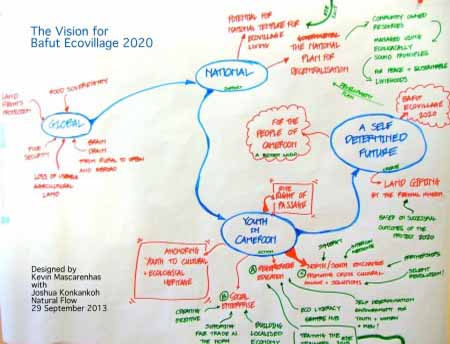 The Vision for
Bafut Ecovillage 2020
POTENTIAL FOR
NATIONAL TEMPLATE FOR
ECOVILLAGE
LIVING
THE NATIONAL
PLAN FOR
DECENTRALISATION
COMMUNITY OWNED
RESOURCES
MANAGED USING
ECOLOGICALLY
SOUND PRINCIPLES
FOR PEACE + SUSTAINABLE
LIVELIHOODS
DEVELOPMENT
PLAN
NATIONAL
SUPPORT
FOOD SOVEREIGNTY
LAND
RIGHTS
PROTECTION
GLOBAL
FUEL
SECURITY
BRAIN
DRAIN
FROM RURAL TO URBAN
AND ABROAD
LOSS OF USABLE
AGRICULTURAL
LAND
FOR THE
PEOPLE OF
CAMEROON
A BETTER WORLD
BAFUT
ECOVILLAGE
2020
A SELF
DETERMINED
FUTURE
UPDATE
LAND GIFTING
BY THE
BASED ON SUCCESSFUL
OUTCOMES OF THE
PROJECT 2020
RIGHT OF
PASSAGE
YOUTH
IN
CAMEROON
ACTION
ANCHORING
YOUTH TO CULTURAL
+ ECOLOGICAL
HERITAGE
EDUCATION
NORTH/SOUTH EXCHANGE
PROMOTE CROSS CULTURAL
+ SOLUTIONS
PARTNERSHIPS
SILENT
REVOLUTION!
B SOCIAL
ENTERPRISE
CREATIVE
SUPPORTING
FAIR TRADE IN
THE NORTH
BUILDING
LOCALISED
ECONOMY
ECO LITERACY
CENTRE HUB
TRAINING THE
SELF DETERMINATION
EMPOWERMENT FOR
YOUTH + WOMEN
+ MEN!
Designed by
Kevin Mascarenhas
with
Joshua Konkankoh
Natural Flow
29 September 2013